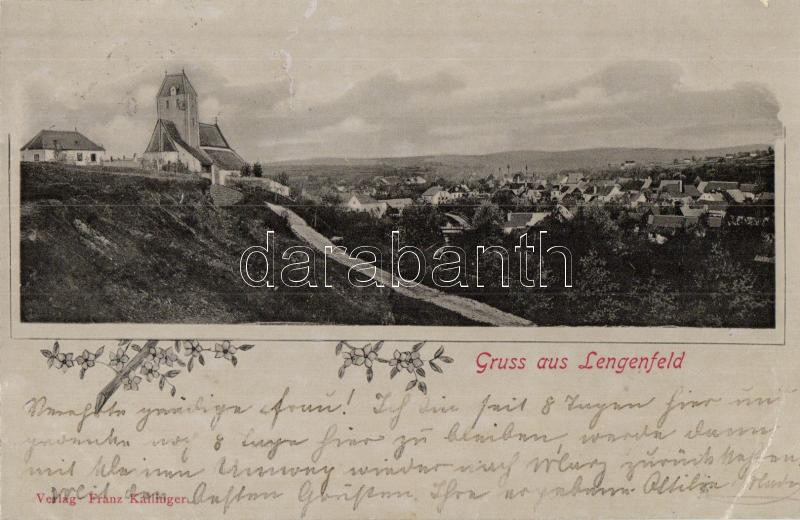 darabanth
Gruss aus Lengenfeld
Verehrte gnädige Frau! Ich bin seit 8 Tagen hier und
gedenke noch 8 Tage hier zu bleiben, werde dann
mit kleinen Umweg wieder nach zurückkehren.
Mit den besten Grüßen. Ihre ergebene Ottilie
Verlag Franz Kallinger.